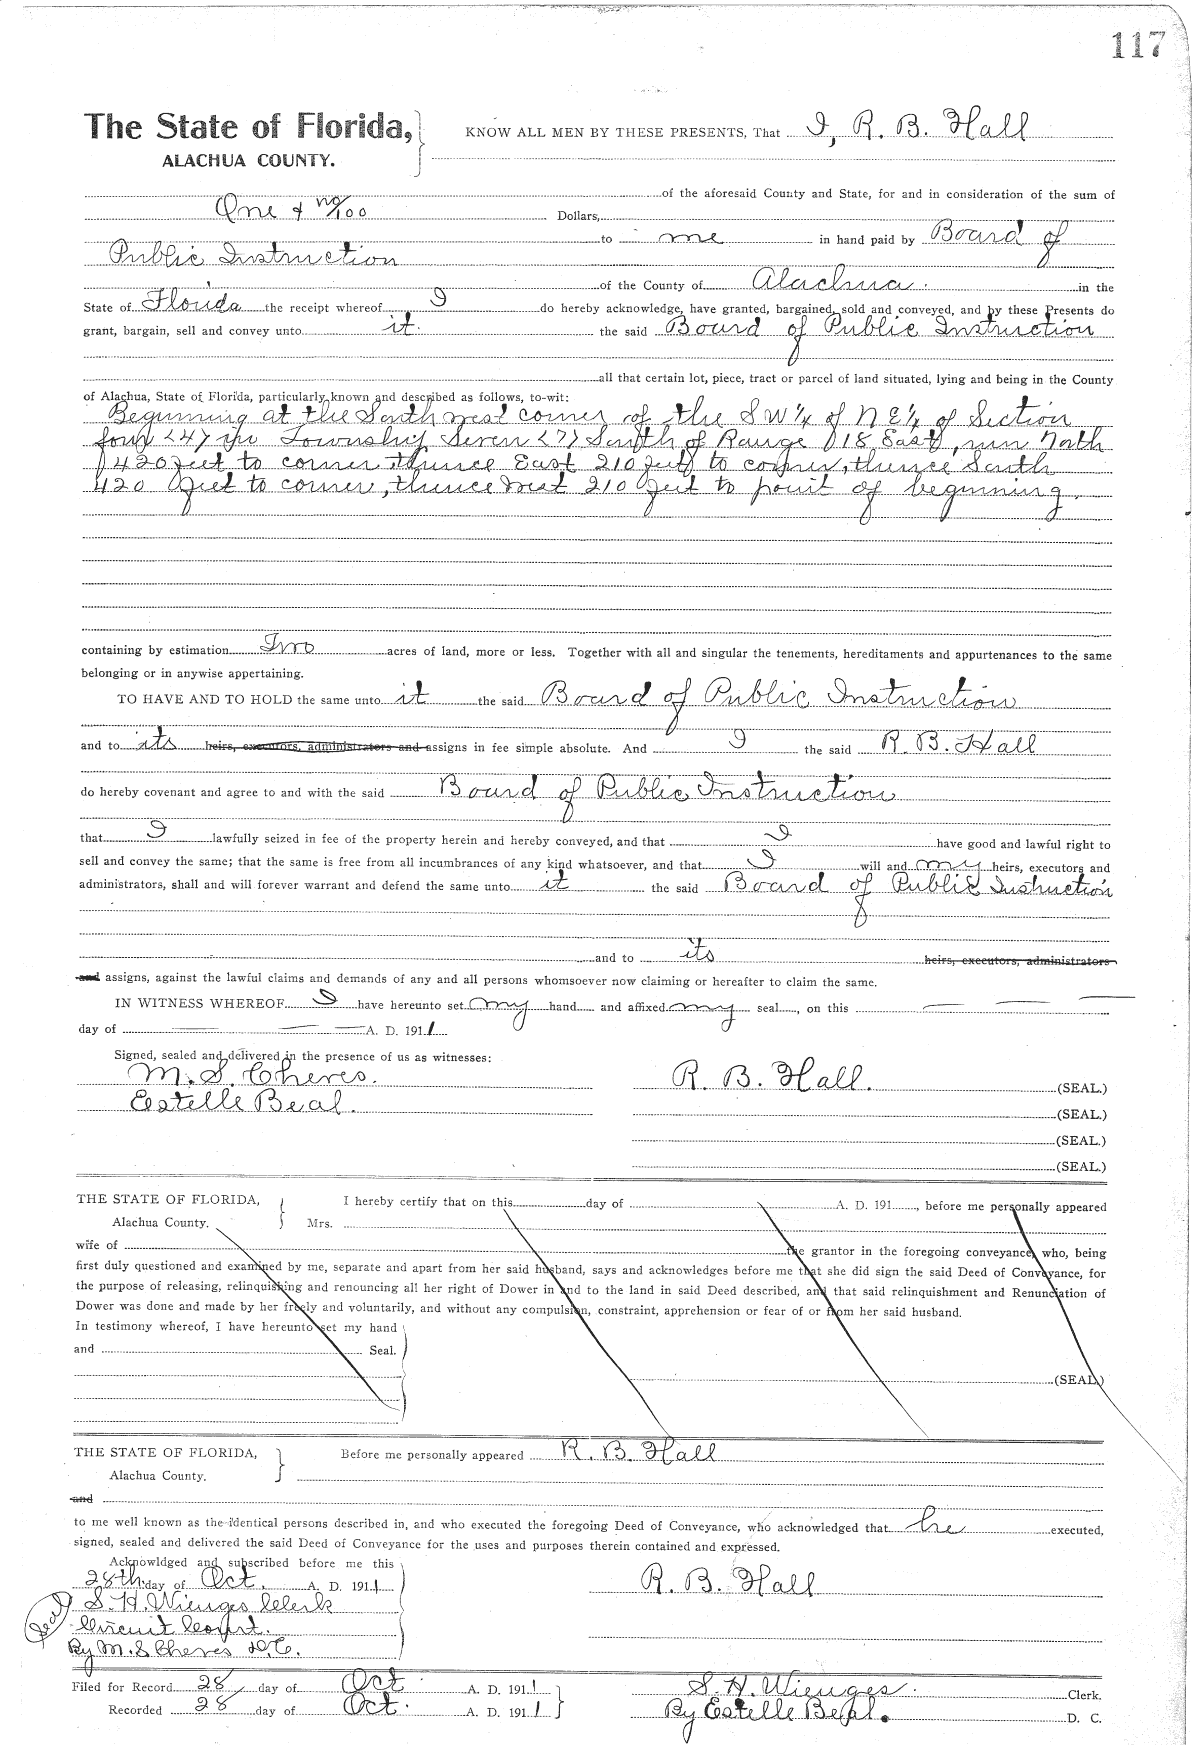 117
The State of Florida,
ALACHUA COUNTY.
KNOW ALL MEN BY THESE PRESENTS, That I, R. B. Hall
of the aforesaid County and State, for and in consideration of the sum of
One & no/100 Dollars,
to me in hand paid by Board of
Public Instruction
of the County of Alachua in the
State of Florida the receipt whereof I do hereby acknowledge, have granted, bargained, sold and conveyed, and by these Presents do
grant, bargain, sell and convey unto it the said Board of Public Instruction
all that certain lot, piece, tract or parcel of land situated, lying and being in the County
of Alachua, State of Florida, particularly known and described as follows, to-wit:
Beginning at the South west corner of the SW¼ of NE¼ of Section
four <4> in Township Seven <7> South of Range 18 East, run North
420 feet to corner thence East 210 feet to corner, thence South
420 feet to corner, thence west 210 feet to point of beginning.
containing by estimation Two acres of land, more or less. Together with all and singular the tenements, hereditaments and appurtenances to the same
belonging or in anywise appertaining.
TO HAVE AND TO HOLD the same unto it the said Board of Public Instruction
and to its heirs, executors, administrators and assigns in fee simple absolute. And I the said R. B. Hall
do hereby covenant and agree to and with the said Board of Public Instruction
that I lawfully seized in fee of the property herein and hereby conveyed, and that I have good and lawful right to
sell and convey the same; that the same is free from all incumbrances of any kind whatsoever, and that I will and my heirs, executors and
administrators, shall and will forever warrant and defend the same unto it the said Board of Public Instruction
and to its heirs, executors, administrators
and assigns, against the lawful claims and demands of any and all persons whomsoever now claiming or hereafter to claim the same.
IN WITNESS WHEREOF I have hereunto set my hand and affixed my seal, on this
day of A. D. 1911
Signed, sealed and delivered in the presence of us as witnesses:
M. S. Cheves. R. B. Hall. (SEAL.)
Estelle Beal. (SEAL.)
(SEAL.)
(SEAL.)
THE STATE OF FLORIDA, I hereby certify that on this day of A. D. 191 , before me personally appeared
Alachua County. Mrs.
wife of the grantor in the foregoing conveyance, who, being
first duly questioned and examined by me, separate and apart from her said husband, says and acknowledges before me that she did sign the said Deed of Conveyance, for
the purpose of releasing, relinquishing and renouncing all her right of Dower in and to the land in said Deed described, and that said relinquishment and Renunciation of
Dower was done and made by her freely and voluntarily, and without any compulsion, constraint, apprehension or fear of or from her said husband.
In testimony whereof, I have hereunto set my hand
and Seal.
(SEAL)
THE STATE OF FLORIDA, Before me personally appeared R. B. Hall
Alachua County.
and
to me well known as the identical persons described in, and who executed the foregoing Deed of Conveyance, who acknowledged that he executed,
signed, sealed and delivered the said Deed of Conveyance for the uses and purposes therein contained and expressed.
Acknowldged and subscribed before me this
28th day of Oct. A. D. 1911 R. B. Hall
Seal S. H. Wienges Clerk
Circuit Court.
By M. S Cheves D.C.
Filed for Record 28 day of Oct A. D. 1911 S. H. Wienges. Clerk.
Recorded 28 day of Oct. A. D. 1911 By Estelle Beal. D. C.